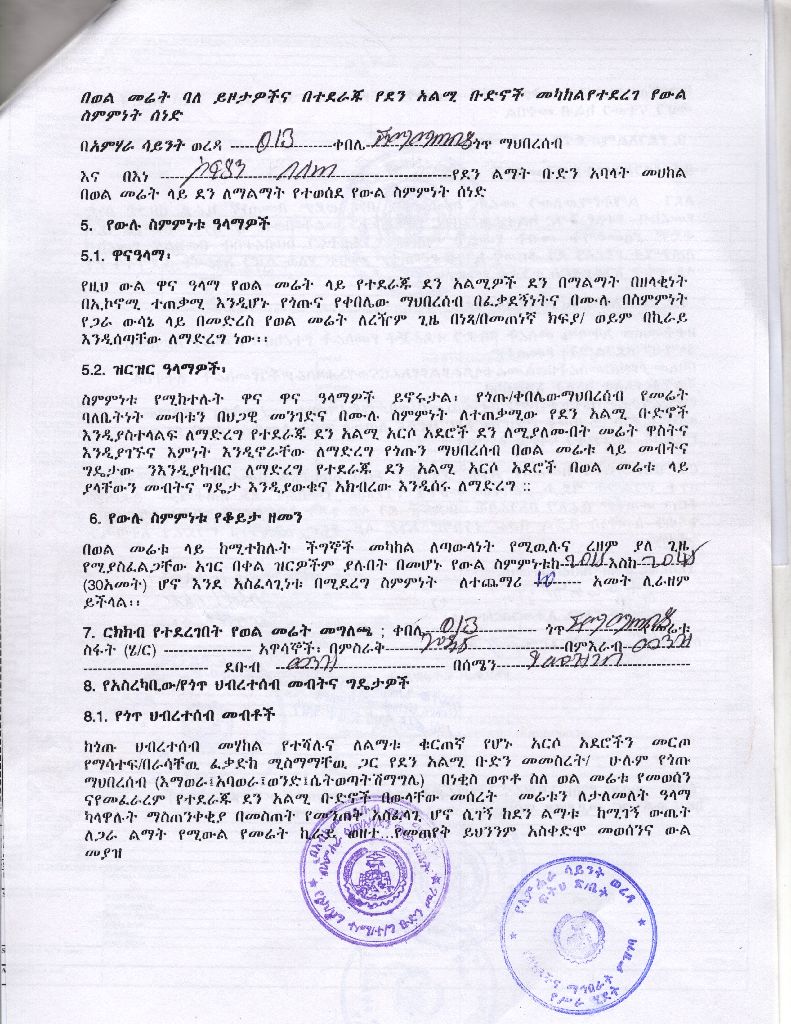 በወል መሬት ባለ ይዞታዎችና በተደራጁ የደን አልሚ ቡድኖች መካከል የተደረገ የውል
ስምምነት ሰነድ
በአምሃራ ሳይንት ወረዳ 013 ቀበሌ ጎጥ ማህበረሰብ
እና በእነ የደን ልማት ቡድን አባላት መሀከል
በወል መሬት ላይ ደን ለማልማት የተወሰደ የውል ስምምነት ሰነድ
5. የውሉ ስምምነቱ ዓላማዎች
5.1. ዋናዓላማ፡
የዚህ ውል ዋና ዓላማ የወል መሬት ላይ የተደራጁ ደን አልሚዎች ደን በማልማት በዘላቂነት
በኢኮኖሚ ተጠቃሚ እንዲሆኑ የጎጡና የቀበሌው ማህበረሰብ በፈቃደኝነትና በሙሉ በስምምነት
የጋራ ውሳኔ ላይ በመድረስ የወል መሬት ለረዥም ጊዜ በነጻ/በመጠነኛ ክፍያ/ ወይም በኪራይ
እንዲሰጣቸው ለማድረግ ነው፡፡
5.2. ዝርዝር ዓላማዎች፡
ስምምነቱ የሚከተሉት ዋና ዋና ዓላማዎች ይኖሩታል፡ የጎጡ/ቀበሌው ማህበረሰብ የመሬት
ባለቤትነት መብቱን በህጋዊ መንገድና በሙሉ ስምምነት ለተጠቃሚው የደን አልሚ ቡድኖች
እንዲያስተላልፍ ለማድረግ የተደራጁ ደን አልሚ አርሶ አደሮች ደን ለሚያለሙበት መሬት ዋስትና
እንዲያገኙና እምነት እንዲኖራቸው ለማድረግ የጎጡን ማህበረሰብ በወል መሬቱ ላይ መብትና
ግዴታው ንእንዲያከብር ለማድረግ የተደራጁ ደን አልሚ አርሶ አደሮች በወል መሬቱ ላይ
ያላቸውን መብትና ግዴታ እንዲያውቁና አክብረው እንዲሰሩ ለማድረግ ::
6. የውሉ ስምምነቱ የቆይታ ዘመን
በወል መሬቱ ላይ ከሚተከሉት ችግኞች መካከል ለጣውላነት የሚዉሉና ረዘም ያለ ጊዜ
የሚያስፈልጋቸው አገር በቀል ዝርዎችም ያሉበት በመሆኑ የውል ስምምነቱከ እስከ
(30አመት) ሆኖ እንደ አስፈላጊነቱ በሚደረግ ስምምነት ለተጨማሪ 10 አመት ሊራዘም
ይችላል፡፡
7. ርክክብ የተደረገበት የወል መሬት መግለጫ ; ቀበሌ 013 ጎጥ የመሬቱ
ስፋት (ሄ/ር) አዋሳኞች፡ በምስራቅ በምእራብ
ደቡብ በሰሜን
8. የአስረካቢው/የጎጥ ህብረተሰብ መብትና ግዴታዎች
8.1. የጎጥ ህብረተሰብ መብቶች
ከጎጡ ህብረተሰብ መሃከል የተሻሉና ለልማቱ ቁርጠኛ የሆኑ አርሶ አደሮችን መርጦ
የማሳተፍ/በራሳቸዉ ፈቃደከ ሚስማማቸዉ ጋር የደን አልሚ ቡድን መመስረት/ ሁሉም የጎጡ
ማህበረሰብ (እማወራ፤አባወራ፤ወንድ፤ሴትወጣትሽማግሌ) በነቂስ ወጥቶ ስለ ወል መሬቱ የመወሰን
ናየመፈራረም የተደራጁ ደን አልሚ ቡድኖች በውላቸው መሰረት መሬቱን ለታለመለት ዓላማ
ካላዋሉት ማስጠንቀቂያ በመስጠት የመንጠቅ አስፈላጊ ሆኖ ሲገኝ ከደን ልማቱ ከሚገኝ ውጤት
ለጋራ ልማት የሚውል የመሬት ኪራይ ወዘተ...የመጠየቅ ይህንንም አስቀድሞ መወሰንና ውል
መያዝ
የአምሐራ ሳይንት ወረዳ
ፍትህ ጽ/ቤት